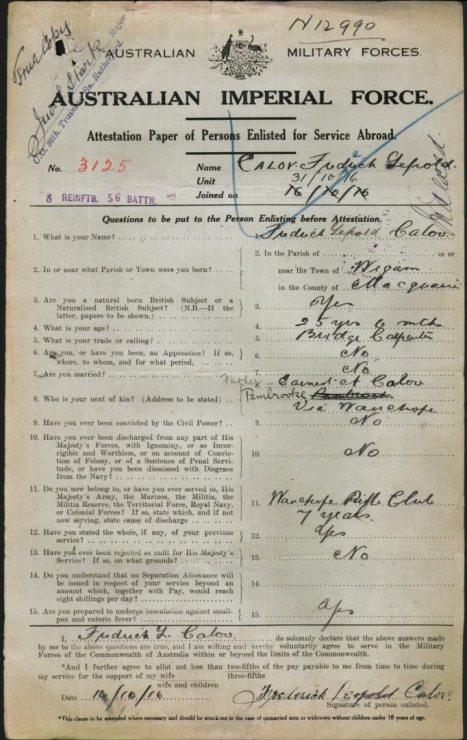 N12990
True Copy
AUSTRALIAN MILITARY FORCES.
AUSTRALIAN IMPERIAL FORCE.
Attestation Paper of Persons Enlisted for Service Abroad.
No. 3125
Name CALOV. Fredrick Lepold.
Unit 31/10/16
8 REINFTS. 56 BATTN.
Joined on 16/10/16
Questions to be put to the Person Enlisting before Attestation.
1. What is your Name?
1. Fredrick Lepold Calov
2. In or near what Parish or Town were you born?
2. In the Parish of in or
near the Town of
in the County of Macquarie
3. Are you a natural born British Subject or a
Naturalized British Subject? (N.B.—If the
latter, papers to be shown.)
3. Yes
4. What is your age?
4. 25 yrs 6 mths
5. What is your trade or calling?
5. Bridge Carpenter
6. Are you, or have you been, an Apprentice? If so,
where, to whom, and for what period,
6. No
7. Are you married?
7. No
8. Who is your next of kin? (Address to be stated)
8. Father – Earnest Calov
Pembrooke
Via Wauchope
9. Have you ever been convicted by the Civil Power?
9. No
10. Have you ever been discharged from any part of His
Majesty's Forces, with Ignominy, or as Incor-
rigible and Worthless, or on account of Convic-
tion of Felony, or of a Sentence of Penal Servi-
tude, or have you been dismissed with Disgrace
from the Navy?
10. No
11. Do you now belong to, or have you ever served in, His
Majesty's Army, the Marines, the Militia, the
Militia Reserve, the Territorial Force, Royal Navy,
or Colonial Forces? If so, state which, and if not
now serving, state cause of discharge
11. Wauchope Rifle Club
7 years
12. Have you stated the whole, if any, of your previous
service?
12. Yes
13. Have you ever been rejected as unfit for His Majesty's
Service? If so, on what grounds?
13. No
14. Do you understand that no Separation Allowance will
be issued in respect of your service beyond an
amount which, together with Pay, would reach
eight shillings per day?
14.
15. Are you prepared to undergo inoculation against small-
pox and enteric fever?
15. Yes
I, Fredrick L. Calov do solemnly declare that the above answers made
by me to the above questions are true, and I am willing and hereby voluntarily agree to serve in the Military
Forces of the Commonwealth of Australia within or beyond the limits of the Commonwealth.
*And I further agree to allot not less than two-fifths of the pay payable to me from time to time during
three-fifths
my service for the support of my wife
wife and children
Date 16/10/16
Frederick Leopold Calov
Signature of person enlisted.
*This clause to be amended where necessary and should be struck out in the case of unmarried men or widowers without children under 18 years of age.